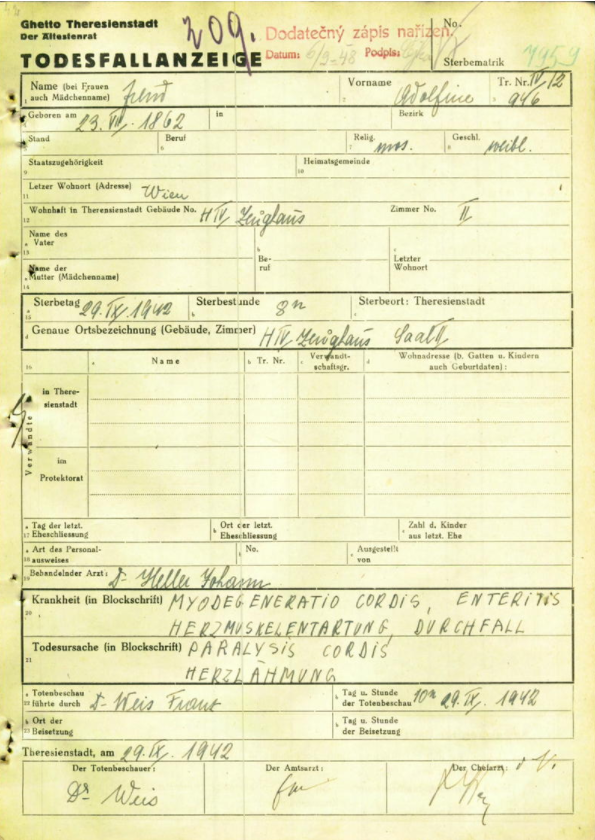 Ghetto Theresienstadt
Der Ältestenrat
TODESFALLANZEIGE
209.
Dodatečný zápis nařízen.
Datum: 6/9-48 Podpis:
No.
Sterbematrik
Name (bei Frauen auch Mädchenname) Vorname Adolfine Tr. Nr. IV/2 946
Geboren am 23. VII. 1862 in Bezirk
Stand Beruf Relig. mos. Geschl. weibl.
Staatszugehörigkeit Heimatsgemeinde
Letzer Wohnort (Adresse) Wien
Wohnhaft in Theresienstadt Gebäude No. H IV Zeughaus Zimmer No. II
Name des Vater Beruf Letzter Wohnort
Name der Mutter (Mädchenname)
Sterbetag 29. IX. 1942 Sterbestunde 8 h Sterbeort: Theresienstadt
Genaue Ortsbezeichnung (Gebäude, Zimmer) H IV Zeughaus
Name Tr. Nr. Verwandtschaftsgr. Wohnadresse (b. Gatten u. Kindern auch Geburtdaten):
Verwandte
in Theresienstadt
im Protektorat
Tag der letzt. Eheschliessung Ort der letzt. Eheschliessung Zahl d. Kinder aus letzt. Ehe
Art des Personalausweises No. Ausgestellt von
Behandelnder Arzt: Dr. Heller Johann
Krankheit (in Blockschrift) MYODEGENERATIO CORDIS, ENTERITIS
HERZMUSKELENTARTUNG, DURCHFALL
Todesursache (in Blockschrift) PARALYSIS CORDIS
HERZLÄHMUNG
Totenbeschau führte durch Dr. Weis Franz Tag u. Stunde der Totenbeschau 10 h 29. IX. 1942
Ort der Beisetzung Tag u. Stunde der Beisetzung
Theresienstadt, am 29. IX. 1942
Der Totenbeschauer: Der Amtsarzt: Der Chefarzt:
Dr. Weis